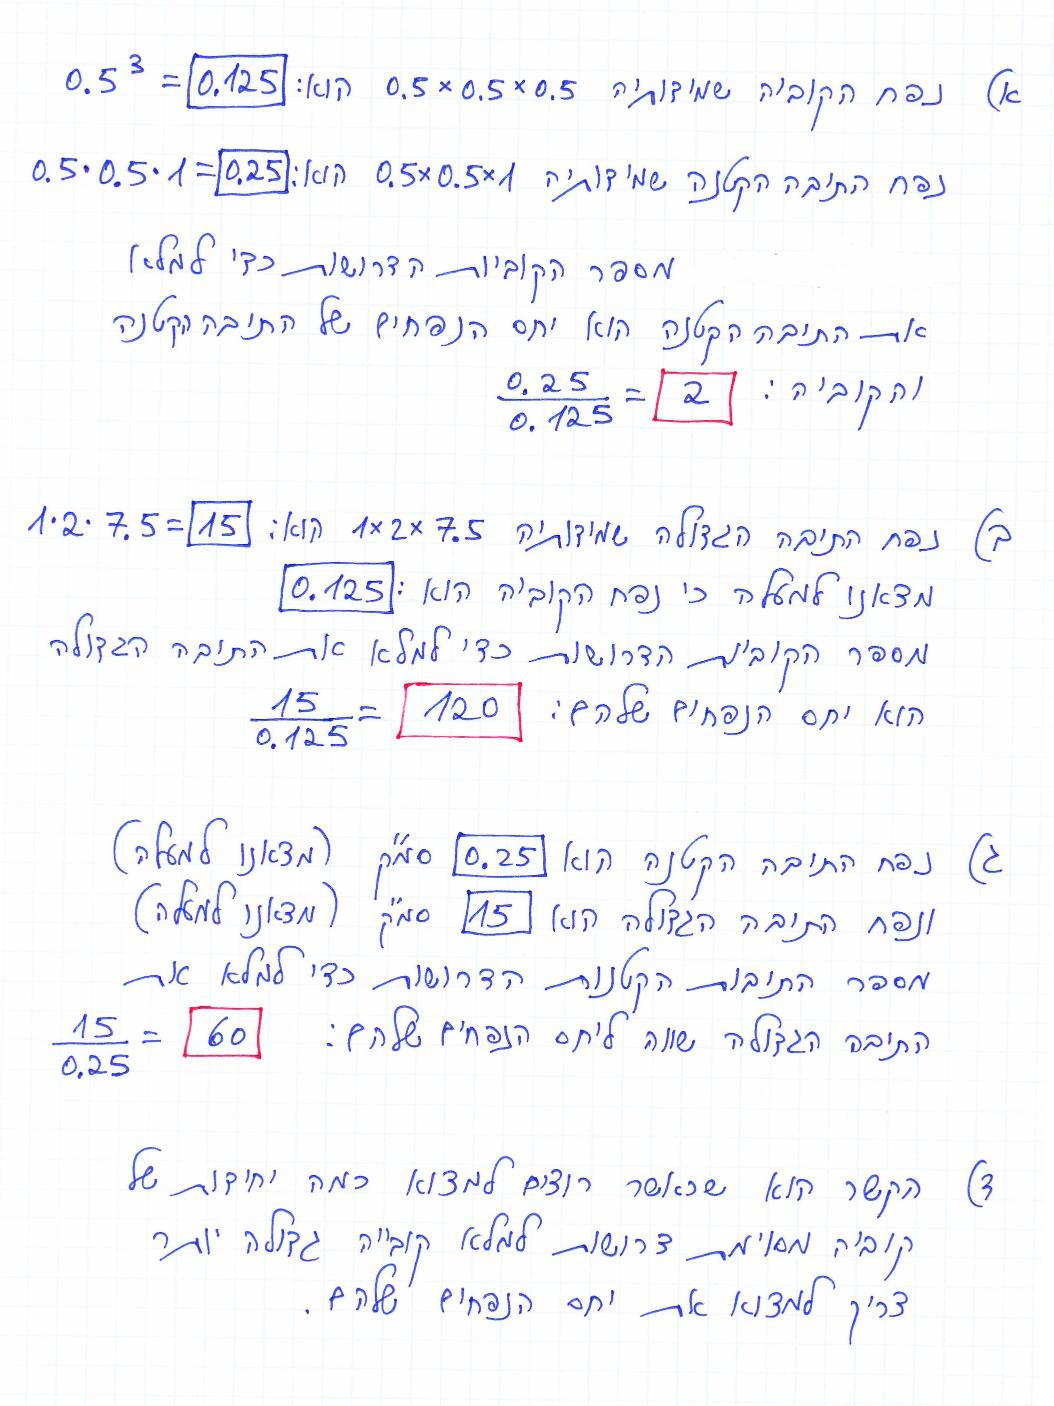 א) נפח הקוביה שמידותיה 0.5×0.5×0.5 הוא: 0.5³ = 0.125
נפח התיבה הקטנה שמידותיה 0.5×0.5×1 הוא: 0.5·0.5·1=0.25
מספר הקוביות הדרושות כדי למלא
את התיבה הקטנה הוא יחס הנפחים של התיבה הקטנה
והקוביה: 0.25/0.125 = 2
ב) נפח התיבה הגדולה שמידותיה 1×2×7.5 הוא: 1·2·7.5=15
מצאנו למעלה כי נפח הקוביה הוא: 0.125
מספר הקוביות הדרושות כדי למלא את התיבה הגדולה
הוא יחס הנפחים שלהם: 15/0.125 = 120
ג) נפח התיבה הקטנה הוא 0.25 סמ"ק (מצאנו למעלה)
ונפח התיבה הגדולה הוא 15 סמ"ק (מצאנו למעלה)
מספר התיבות הקטנות הדרושות כדי למלא את
התיבה הגדולה שווה ליחס הנפחים שלהם: 15/0.25 = 60
ד) הקשר הוא שכאשר רוצים למצוא כמה יחידות של
קוביה מסוימת דרושות למלא קובייה גדולה יותר
צריך למצוא את יחס הנפחים שלהם.